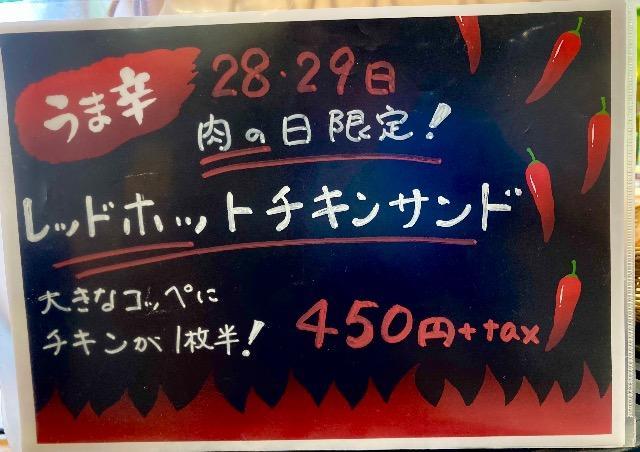 うま辛
28・29日
肉の日限定!
レッドホットチキンサンド
大きなコッペに
チキンが1枚半!
450円+tax